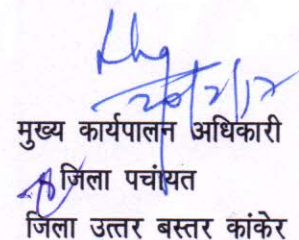 20/2/17
मुख्य कार्यपालन अधिकारी
जिला पचांयत
जिला उत्तर बस्तर कांकेर